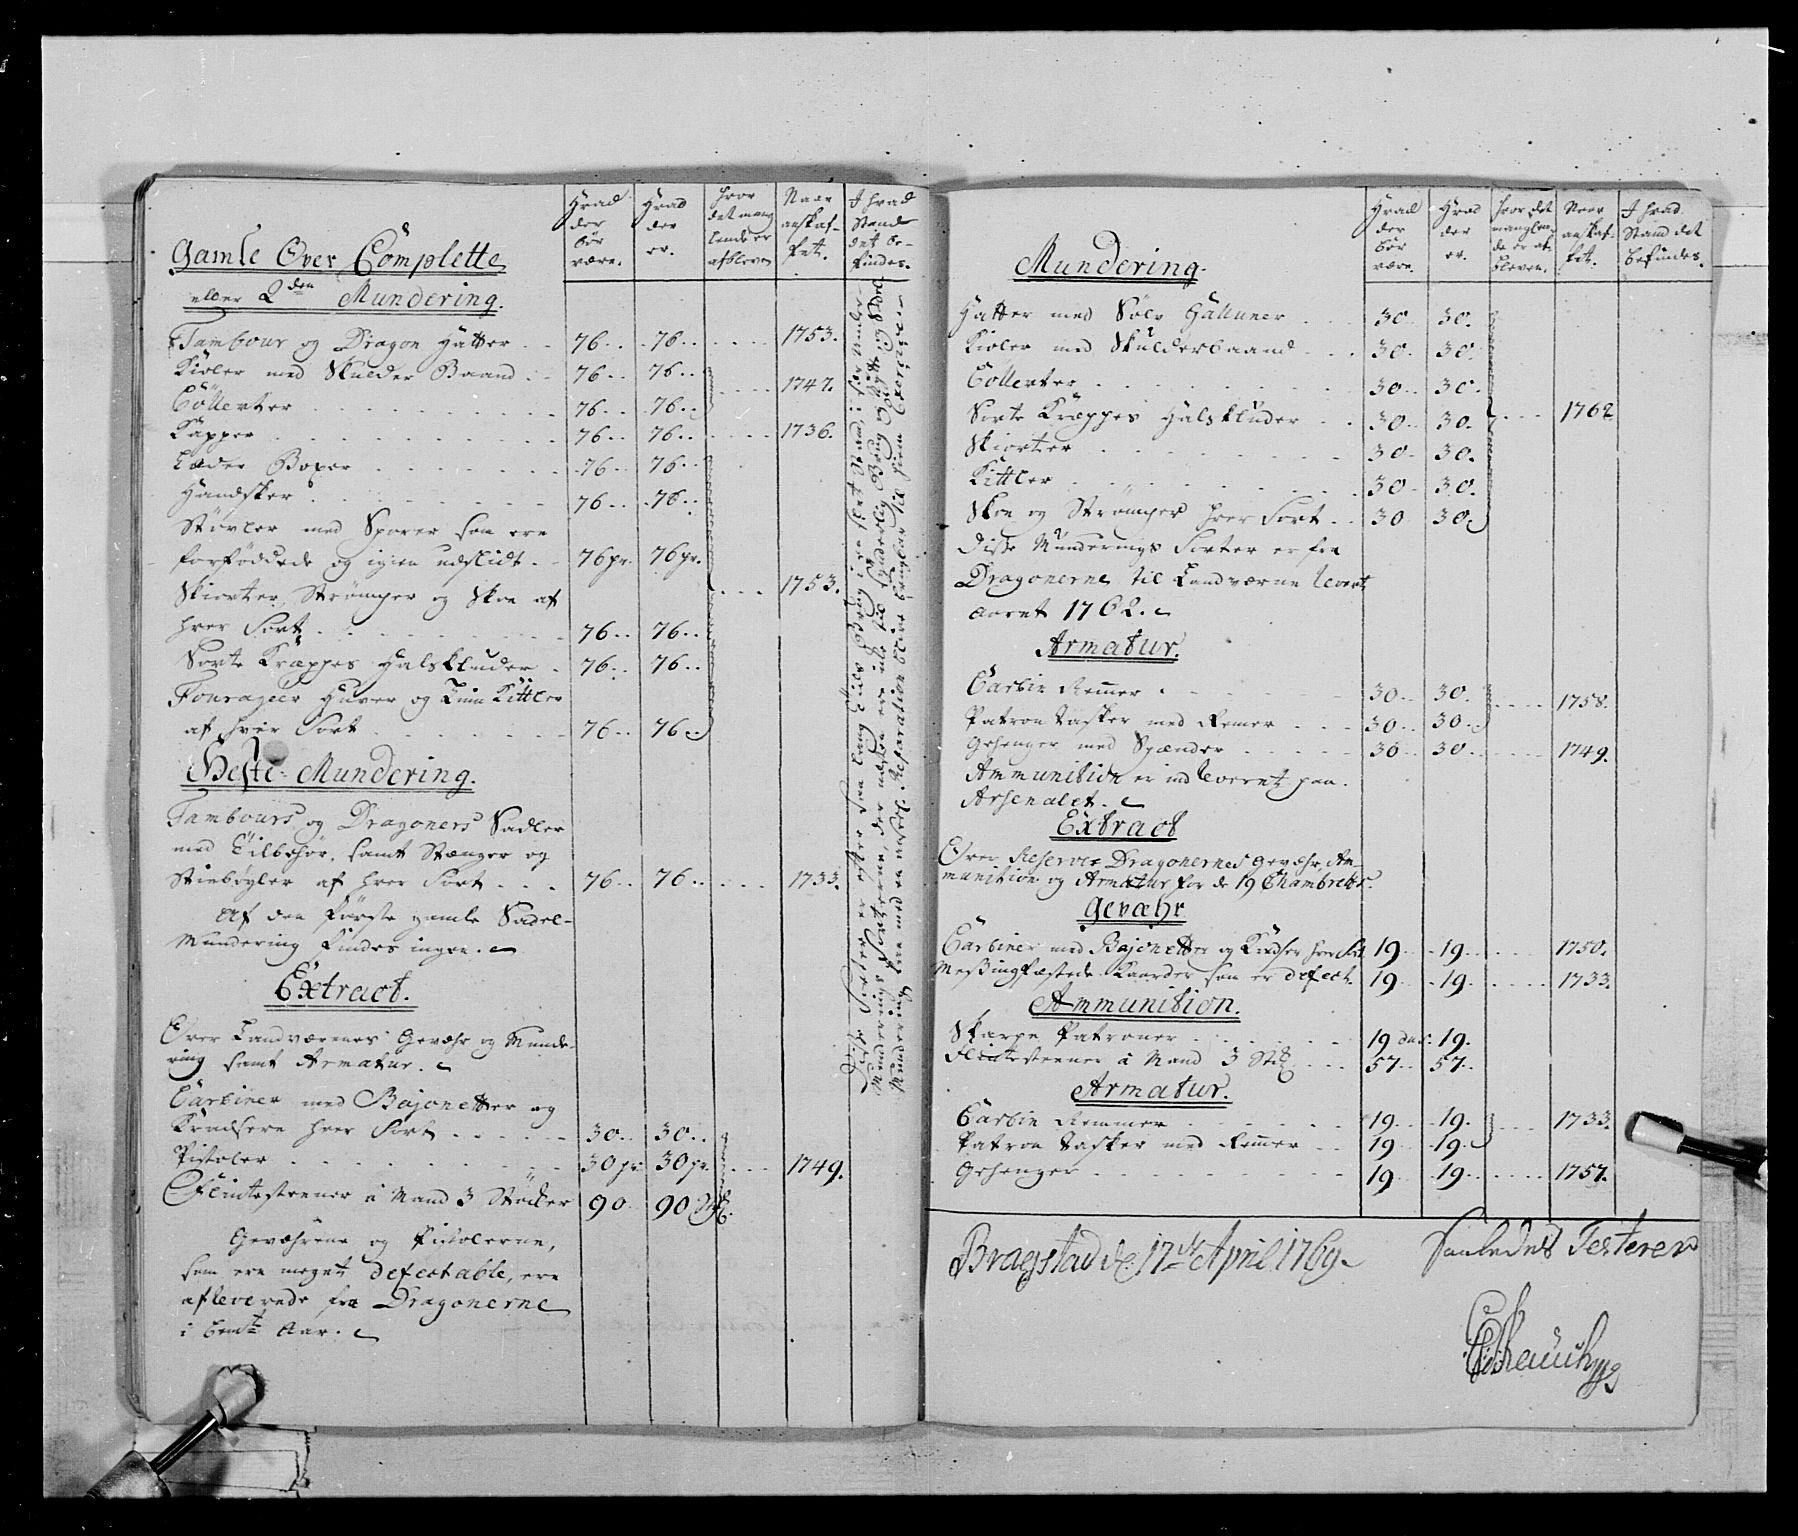 Gamle Over Complette
eller 2den Mundering.
Hvad der bør være.
Hvad der er.
hvor det manglende er afbleven
Naar anskaffet.
I hvad Stand det befindes.
Tambour og Dragon Hatter 76 76 1753.
Kioler med Skulder Baand 76 76
Colletter 76 76 1747.
Kapper 76 76 1736.
Læder Boxer 76 76
Handsker 76 76
Støvler med Sporer som ere
forføddede og igien udslidt. 76 pr. 76 pr.
Skiorter, Strømper og Skoe af 1753.
hver Sort 76 76
Sorte Kræppes Halskluder 76 76
Fourageer Huver og Linn Kittler
af hver Sort 76 76
Heste-Mundering.
Tambours og Dragoners Sadler
med Tilbehør, samt Stænger og
Stiebøyler af hver Sort 76 76 1733.
Af den første gamle Sadel-
Mundering findes ingen.
Extract.
Over Landværnes Gevæhr og Munde-
ring samt Armatur.
Carbiner med Bajonetter og
Kradsere hver Sort 30 30
Pistoler 30 pr. 30 pr. 1749.
Flintesteener a Mand 3 Støcker 90 90 Stk.
Gevæhrene og Pistolerne,
som ere meget defectable, ere
afleverede fra Dragonerne
i bemte Aar.
Disse Sorter er efter saa lang Tids Brug i en slet Stand, i sær Munde-
Munderings Sorterne, der næsten ere
Mundering, kan med en Reparation blive brugbar til Exercitien
Mundering.
Hvad der bør være.
Hvad der er.
hvor det manglende er afbleven.
Naar anskaffet.
I hvad Stand det befindes.
Hatter med Sølv Galluner 30 30.
Kioler med Skulderbaand 30 30.
Colletter 30 30.
Sorte Kræppes Halskluder 30 30. 1762
Skiorter 30 30.
Kittler 30 30.
Skoe og Strømper hver Sort 30 30.
Disse Munderings Sorter er fra
Dragonerne til Landværne levert
Aaret 1762.
Armatur.
Carbin Remmer 30 30. 1758.
Patron Tasker med Remer 30 30
Gehenger med Spænder 30 30 1749.
Ammunition er indleveret paa
Arsenalet.
Extract
Over Reserve Dragonernes Gevæhr Am-
munition og Armatur for de 19
Gevæhr
Carbiner med Bajonetter og Kradser hver Sort 19 19 1750.
Messingfæstede Kaarder som er defect. 19 19 1733.
Ammunition.
Skarpe Patroner 19 19.
Flintesteener a Mand 3 Stk 57 57
Armatur.
Carbin Remmer 19 19. 1733.
Patron Tasker med Remer 19 19
Gehenger 19 19 1757.
Bragstad d. 17de April 1769.
Saaledes Testerer